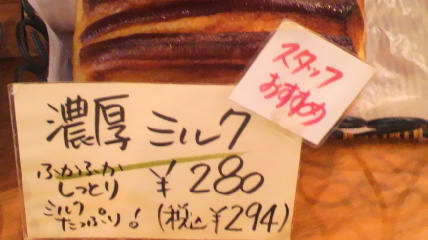 スタッフ
おすすめ
濃厚 ミルク
ふかふか
しっとり
¥280
ミルク
たっぷり!
(税込¥294)